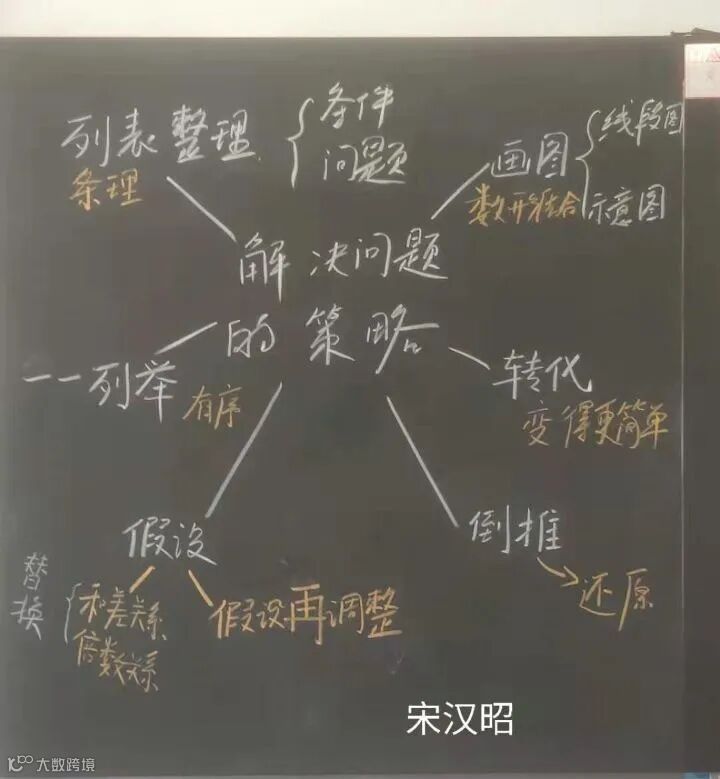 列表整理
条理
条件
问题
画图
数形结合
线段图
示意图
解决问题
的策略
一一列举
有序
转化
变得更简单
假设
替换
和差关系
倍数关系
假设再调整
倒推
还原
宋汉昭
大数跨境